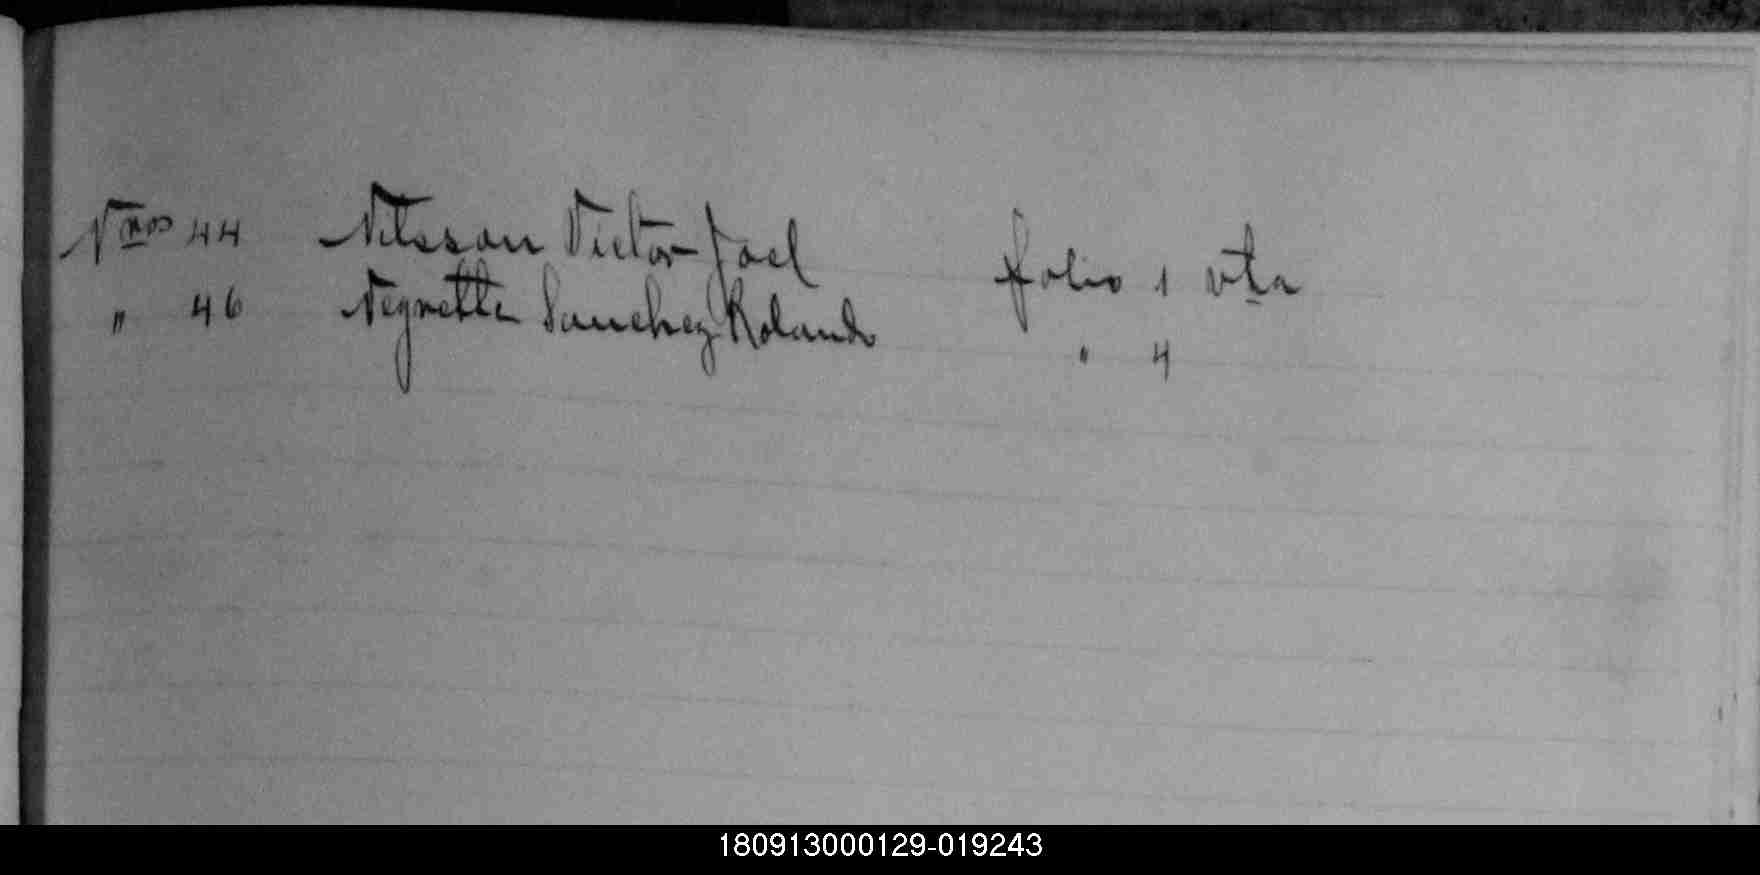 Nros 44 Nilsson Victor Joel folio 1 vta
" 46 Negrette Sanchez Rolando " 4
180913000129-019243